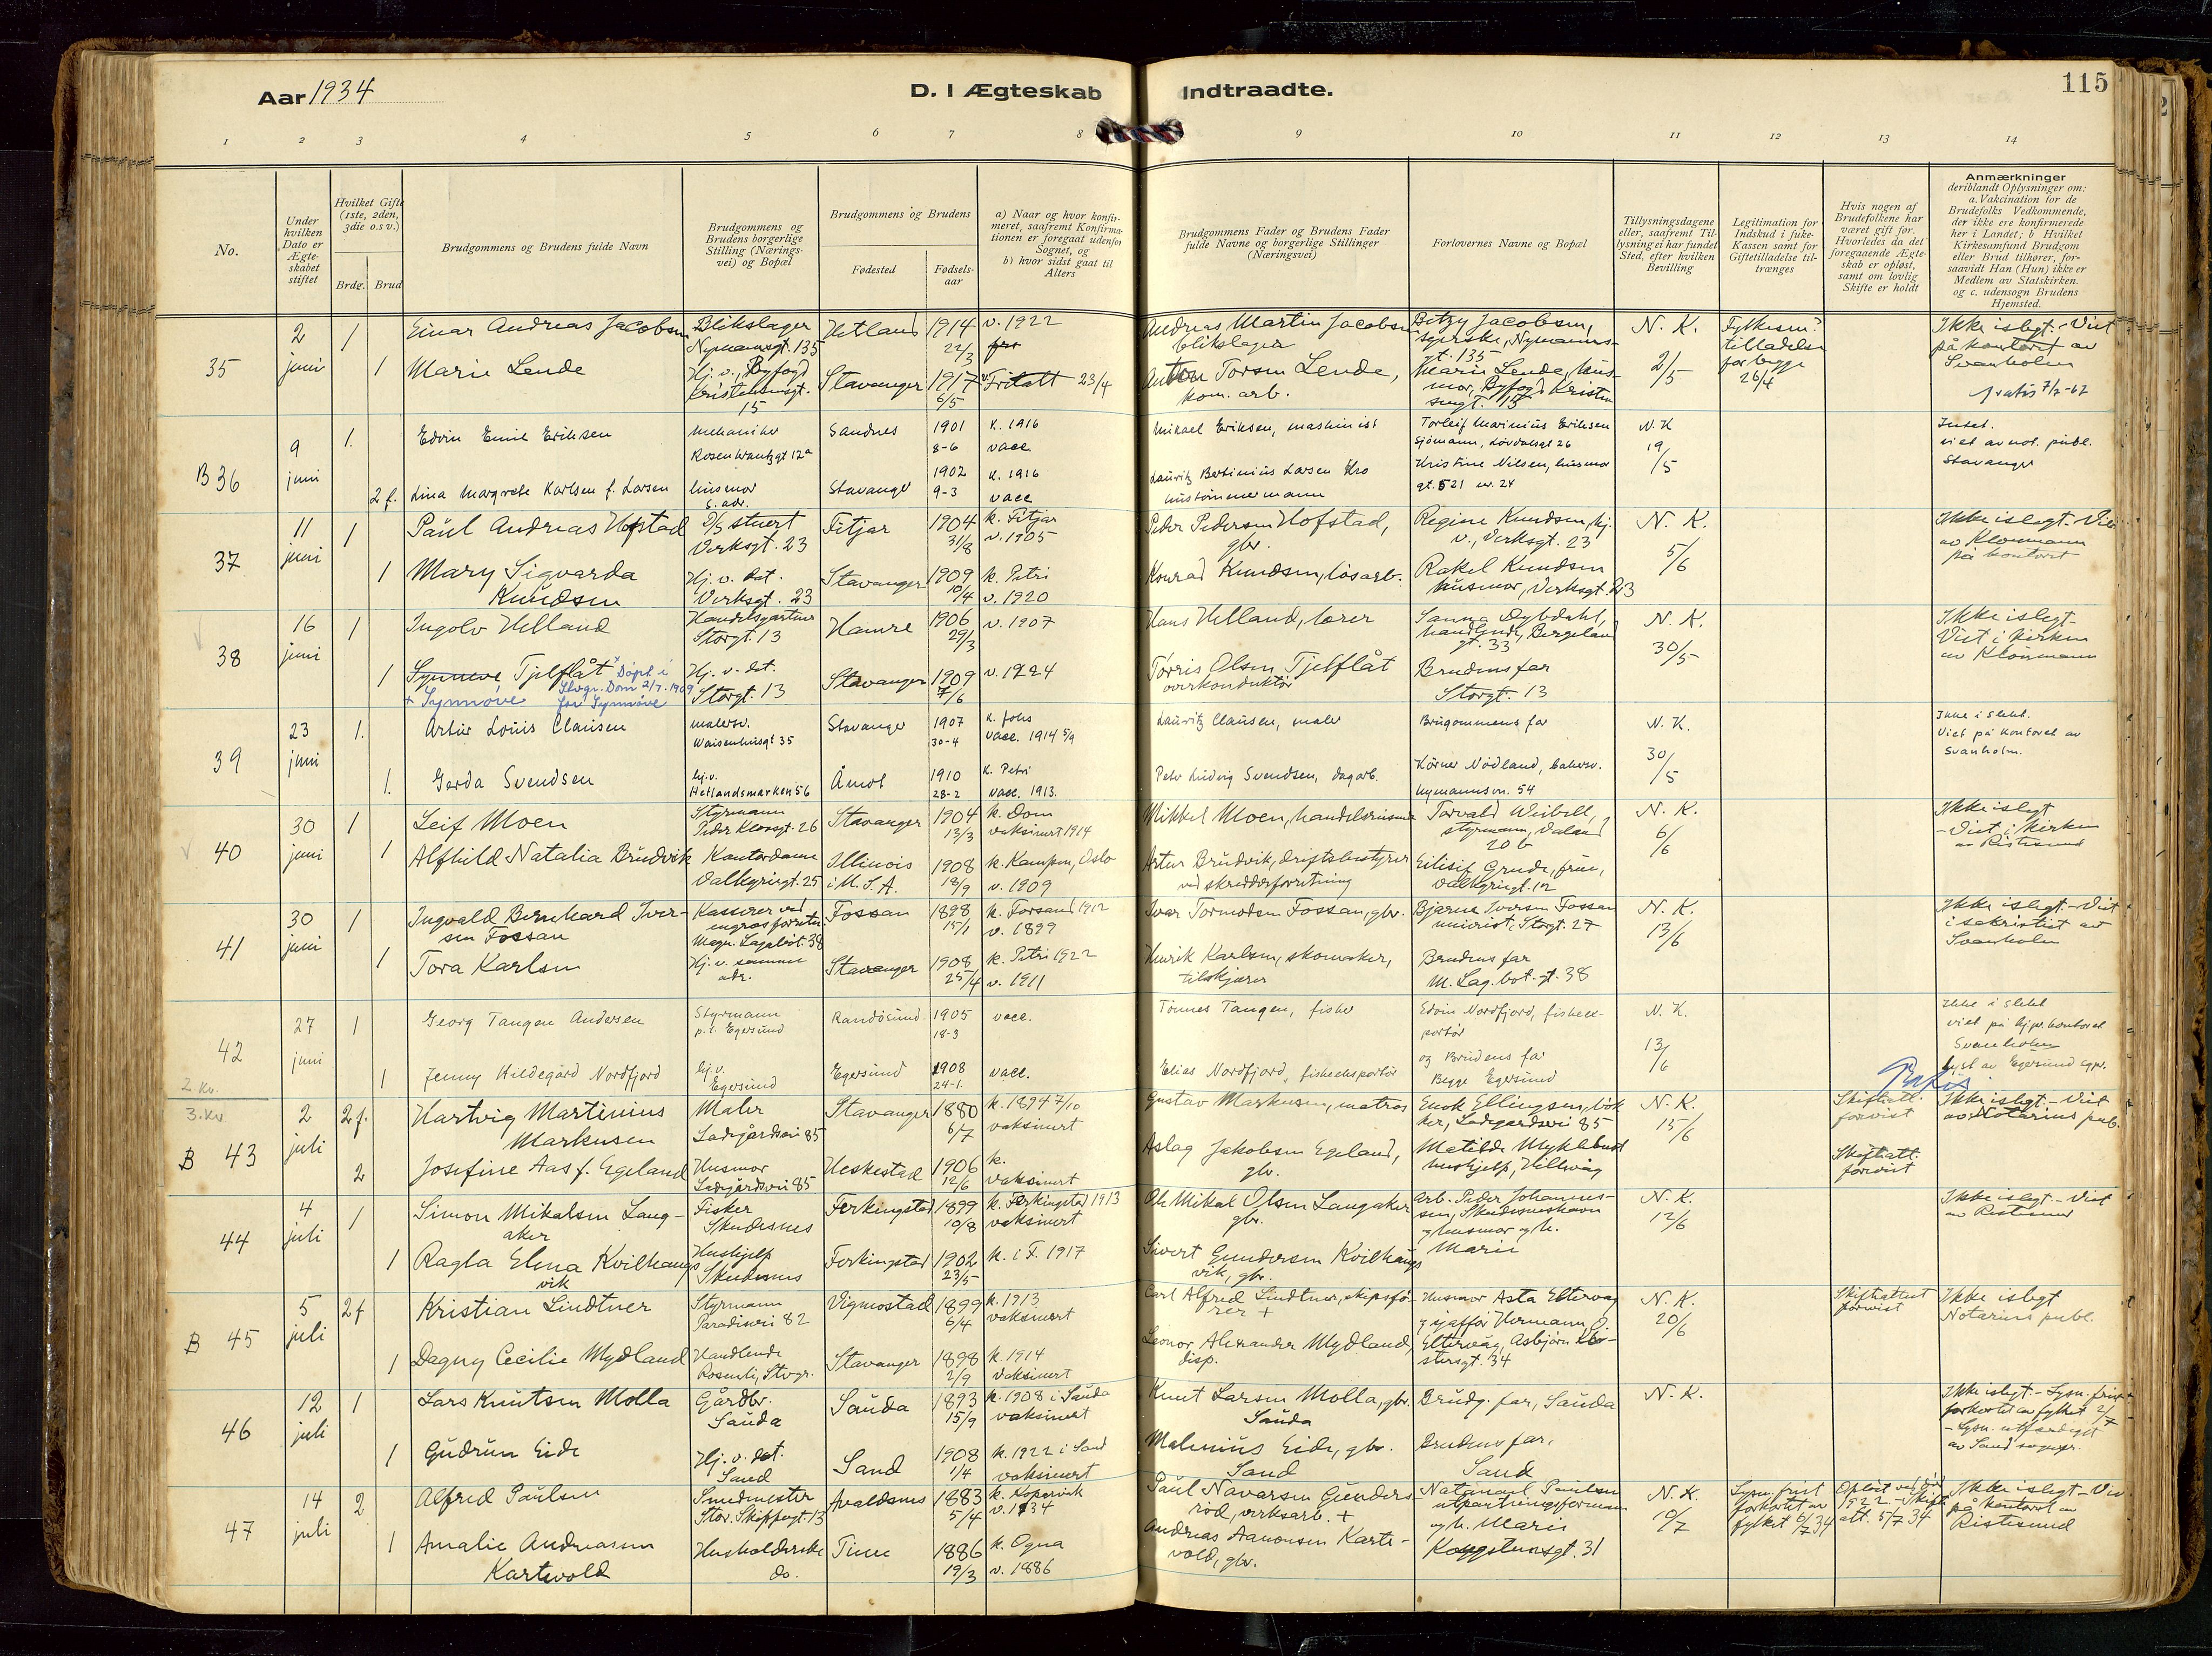 Aar 1934
D. I Ægteskab Indtraadte.
115
1 2 3 4 5 6 7 8 9 10 11 12 13 14
No.
Under hvilken Dato er Ægteskabet stiftet
Hvilket Gifte (1ste, 2den, 3die o.s.v.)
Brdg. Brud
Brudgommens og Brudens fulde Navn
Brudgommens og Brudens borgerlige Stilling (Næringsvei) og Bopæl
Brudgommens og Brudens
Fødested
Fødselsaar
a) Naar og hvor konfirmeret, saafremt Konfirmationen er foregaat udenfor Sognet, og
b) hvor sidst gaat til Alters
Brudgommens Fader og Brudens Fader fulde Navne og borgerlige Stillinger (Næringsvei)
Forlovernes Navne og Bopæl
Tillysningsdagene eller, saafremt Tillysning ei har fundet Sted, efter hvilken Bevilling
Legitimation for Indskud i Enke-Kassen samt for Giftetilladelse tiltrænges
Hvis nogen af Brudefolkene har været gift før. Hvorledes da det foregaaende Ægteskab er opløst, samt om lovlig Skifte er holdt
Anmærkninger
deriblandt Oplysninger om: a. Vakcination for de Brudefolks Vedkommende, der ikke ere konfirmerede her i Landet; b Hvilket Kirkesamfund Brudgom eller Brud tilhører, forsaavidt Han (Hun) ikke er Medlem av Statskirken. og c. udensogn Brudens Hjemsted.
35
2 juni
1
Einar Andreas Jacobsen
Blikslager
Nymannsgt. 135
Hetland
1914
22/3
v. 1922
Andreas Martin Jacobsen
blikslager
Betzy Jacobsen,
syerske, Nymanns-
gt. 135
N. K.
2/5
tilladelse
for begge
26/4
Ikke i slegt. - Viet
på kontoret av
Svanholm
gratis 7/2-62
1
Marie Lende
Hj. v., Byfogd
Kristensensgt.
15
Stavanger
1917
6/5
23/4
Anton Torsen Lende,
kom. arb.
Marie Lende, hus-
mor, Byfogd Kristen-
sensgt. 15
B 36
9 juni
1.
Edvin Emil Eriksen
mekaniker
Rosenkrantzgt 12a
Sandnes
1901
8-6
k. 1916
vacc.
Mikael Eriksen, maskinist
Torleif Marinius Eriksen
sjömann, Lövdalsgt 26
N. K
19/5
viet av not. publ.
Stavanger
2 f.
Lina Margrete Karlsen f. Larsen
husmor
s. adr.
Stavanger
1902
9-3
k. 1916
vacc
Lauritz Bertinius Larsen Kro
hustömmermann
Kristine Nilsen, husmor
gt. 521 nr. 24
37
11 juni
1
Paul Andreas Hofstad
D/S stuert
Verksgt. 23
Fitjar
1904
31/8
k. Fitjar
v. 1905
Peder Pedersen Hofstad,
gbr.
Regine Knudsen, hj.
v., Verksgt. 23
N. K.
5/6
Ikke i slegt. - Viet
av Kloumann
på kontoret
1
Mary Sigvarda
Knudsen
Hj. v. det.
Verksgt. 23
Stavanger
1909
10/4
k. Petri
v. 1920
Konrad Knudsen, løsarb.
Rakel Knudsen
husmor, Verksgt. 23
38
16 juni
1
Ingolv Helland
Handelsgartner
Storgt. 13
Hamre
1906
29/3
v. 1907
Hans Helland, lærer
Sanna Dybdahl,
handlende, Bergeland
gt. 33
N. K.
30/5
Ikke i slegt -
Viet i kirken
av Kloumann
1
Synneve Tjelflåt
x Døpt i
Stvgr. Dom 2/7. 1909
for Synnøve
+ Synnøve
Hj. v. det.
Storgt. 13
Stavanger
1909
7/6
v. 1924
Torris Olsen Tjelflåt
overkonduktør
Brudens far
Storgt. 13
39
23 juni
1.
Artur Louis Clausen
malersv.
Waisenhusgt 35
Stavanger
1907
30-4
k. Johs
vacc. 1914 5/9
Lauritz Clausen, maler
Brugommens far
N. K.
30/5
Ikke i slekt.
Viet på kontoret av
Svanholm.
1.
Gerda Svendsen
hj. v.
Hetlandsmarken 56
Åmot
1910
28-2
k. Petri
vacc. 1913.
Peter Ludvig Svendsen, dagarb.
Körner Nödland, bakersv.
Nymannsvn. 54
40
30 juni
1
Leif Moen
Styrmann
Peder Klowsgt. 26
Stavanger
1904
13/3
k. Dom
vaksinert 1914
Mikkel Moen, handelsreisende
Torvald Weibell,
styrmann,
20 b
N. K.
6/6
Ikke i slegt
- Viet i kirken
av Ristesund
1
Alfhild Natalia Brudvik
Kontordame
Valkyrigt. 25
Illinois
i U. S. A.
1908
18/9
k. Kampen, Oslo
v. 1909
Artur Brudvik, driftsbestyrer
ved skredderforretning
Eilisif Grude, frue,
Valkyrigt. 12
41
30 juni
1
Ingvald Bernhard Iver-
sen Fossan
Kasserer ved
engrosforretn.
Magn. Lagabøt. 38
Fossan
1898
15/1
k. Forsand 1912
v. 1899
Ivar Tormodsen Fossan, gbr.
Bjarne Iversen Fossan
Storgt. 27
N. K.
13/6
Ikke i slegt. - Viet
i sakristiet av
Svanholm
1
Tora Karlsen
Hj. v. samme
adr.
Stavanger
1908
25/4
k. Petri 1922
v. 1911
Henrik Karlsen, skomaker,
tilskjærer
Brudens far
M. Lag. bot. gt. 38
42
27 juni
1
Georg Tangen Andersen
Styrmann
p. t. Egersund
Randösund
1905
18-3
vacc.
Tönnes Tangen, fisker
Edvin Nordfjord, fiskeex-
portör
N. K.
13/6
Ikke i slekt
viet på hj.pr. kontoret
Svanholm
Lyst av Egersund spr.
1
Jenny Hildegard Nordfjord
hj. v.
Egersund
Egersund
1908
24-1.
vacc.
Elias Nordfjord, fiskeeksportör
og Brudens far
Begge Egersund
2. Kv.
3. Kv.
B 43
2 juli
2 f.
Hartvig Martinius
Markusen
Maler
Ladegårdsvei 85
Stavanger
1880
6/7
k. 1894 7/10
vaksinert
Gustav Markusen, matros
Enok Ellingsen, bok
ker, Ladegårdsvei 85
N. K.
15/6
Skifteatt.
forevist
Ikke i slegt. - Viet
av Notarius pub.
2
Josefine Aas f. Egeland
Husmor
Ladegårdsvei 85
Heskestad
1906
12/6
k.
vaksinert
Aslag Jakobsen Egeland,
gbr.
Matilde Myklebust
hushjelp, Hillevåg
Skifteatt.
forevist
44
4 juli
1
Simon Mikalsen Lang-
aker
Fisker
Skudesnes
Ferkingstad
1899
10/8
k. Ferkingstad 1913
vaksinert
Ole Mikal Olsen Langaker
gbr.
arb. Peder Johannes-
sen, Skudesneshavn
og husmor og h.
Marie
N. K.
12/6
Ikke i slegt. - Viet
av Ristesund
1
Ragla Elena Kvilhaugs
vik
Hushjelp
Skudesnes
Ferkingstad
1902
23/5
k. i F. 1917
Sivert Gundersen Kvilhaugs
vik, gbr.
B 45
5 juli
2 f
Kristian Lindtner
Styrmann
Paradisvei 82
Vigmostad
1899
6/4
k. 1913
vaksinert
Carl Alfred Lindtner, skipsfø-
rer +
Husmor Asta Eltervåg
og sjåfför Hermann O.
Eltervåg, Asbjörn Klo-
stersgt. 34
N. K.
20/6
Skifteattest
forevist
Ikke i slegt
Notarius publ.
1
Dagny Cecilie Mydland
Handlende
Rosenli, Stvgr.
Stavanger
1898
2/9
k. 1914
vaksinert
Leonor Alexander Mydland,
disp.
46
12 juli
1
Lars Knutsen Molla
Gårdbr.
Sauda
Sauda
1893
15/9
k. 1908 i Sauda
vaksinert
Knut Larsen Molla, gbr.
Sauda
Brudg. far, Sauda
N. K.
Ikke i slegt. - Lysn. frist
forkortet av fylket 2/7
- Lysn. utferdiget
av Sand sognepr.
1
Gudrun Eide
Hj. v. det.
Sand
Sand
1908
1/4
k. 1922 i Sand
vaksinert
Malenius Eide, gbr.
Sand
Brudens far,
Sand
47
14 juli
2
Alfred Paulsen
Smedmester
Stor. Skippergt. 13
Avaldsnes
1883
5/4
k. Kopervik
v. 1934
Paul Navarsen Gunders-
rød, verksarb. +
Natanael Paulsen
utpartningsformann
og h. Marie
Kongstensgt. 31
N. K.
10/7
Lysn. frist
forkortet av
fylket 6/7 34
Opløst ved død
1922 - Skifte
att. 5/7 34
Ikke i slegt - Viet
på kontoret av
Ristesund
1
Amalie Andreasen
Kartevold
Husholderske
do.
Time
1886
19/3
k. Ogna
v. 1886
Andreas Aanonsen Karte-
vold, gbr.